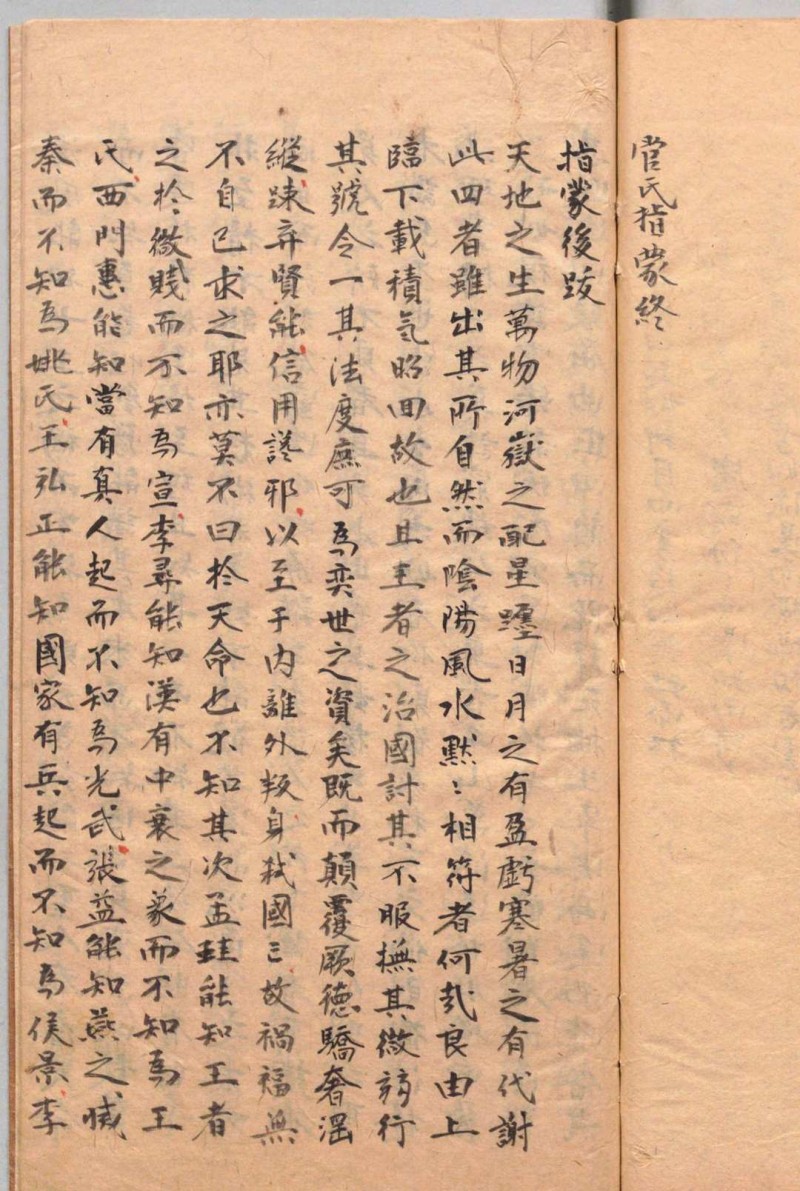 管氏指蒙終
指蒙後跋
天地之生萬物河嶽之配星躔日月之有盈虧寒暑之有代謝
此四者雖出其所自然而陰陽風水默〻相符者何哉良由上
臨下載積氣昭回故也且主者之治國討其不服撫其微弱行
其號令一其法度庶可為奕世之資矣既而顛覆厥德驕奢淫
縱踈弃賢能信用讒邪以至于內離外叛身弒國亡故禍福無
不自已求之耶亦莫不曰於天命也不知其次孟珪能知王者
之於微賤而不知為宣李尋能知漢有中衰之象而不知為王
氏西門惠能知當有真人起而不知為光武張益能知燕之滅
秦而不知為姚氏王弘正能知國家有兵起而不知為侯景李